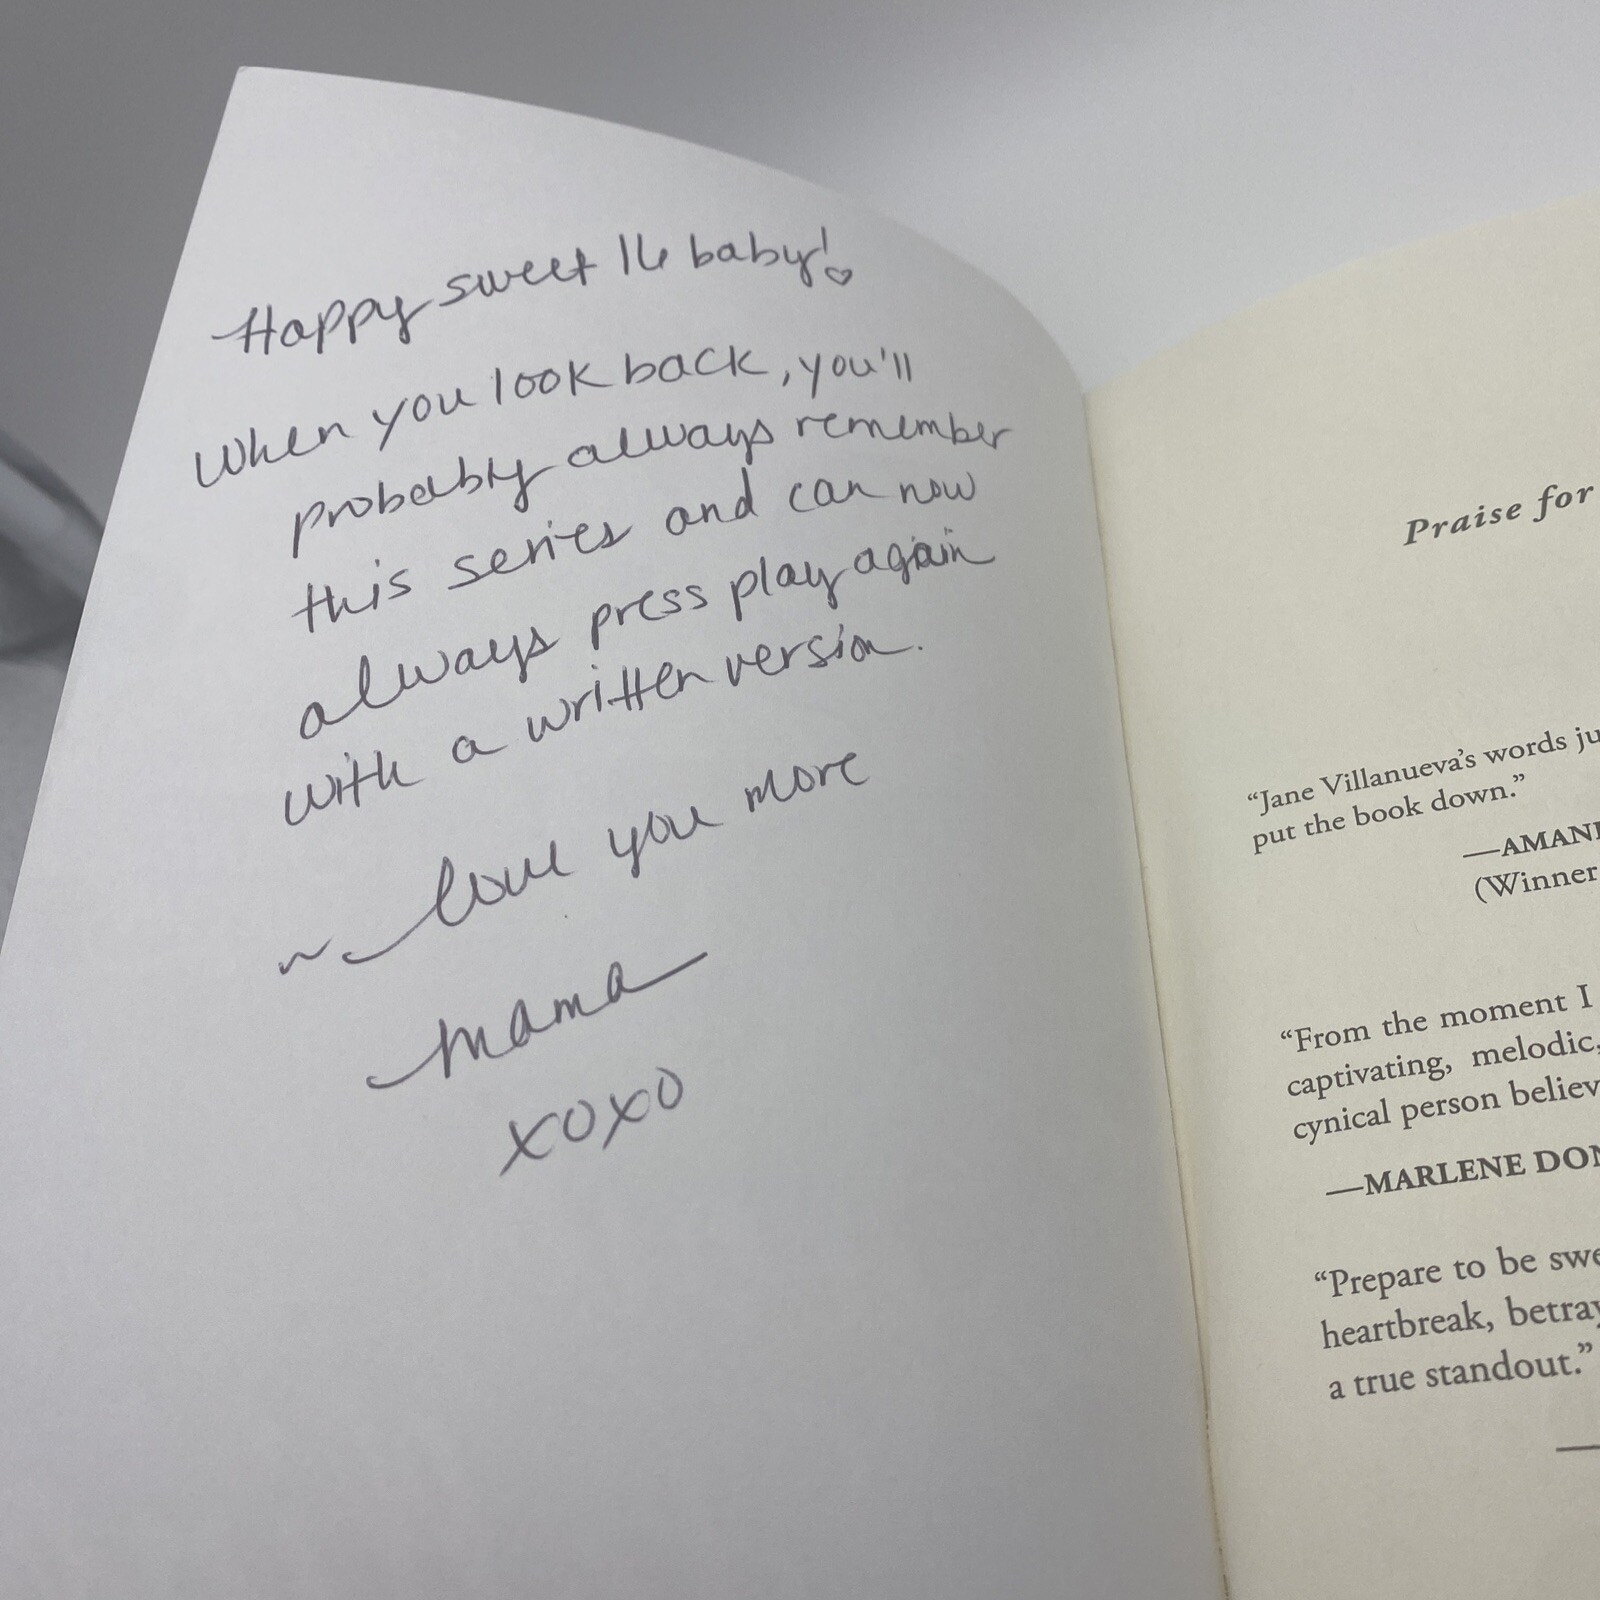 Happy sweet 16 baby!♡
When you look back, you'll
probably always remember
this series and can now
always press play again
with a written version.
~ love you more
mama
xoxo
Praise for
“Jane Villanueva’s words ju
put the book down.”
—AMAND
(Winner
“From the moment I
captivating, melodic,
cynical person believ
—MARLENE DON
“Prepare to be swe
heartbreak, betray
a true standout.”
—